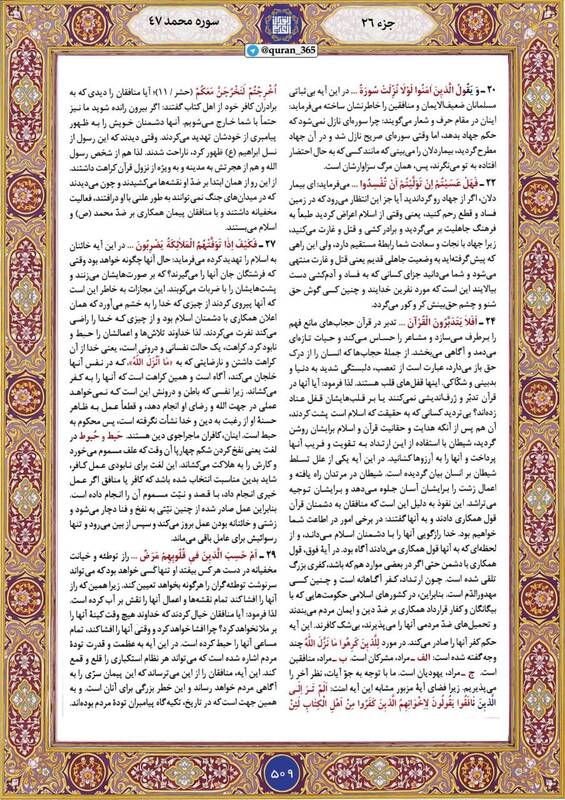 جزء ۲۶
سوره محمد ۴۷
@quran_365
۲۰ ـ وَ يَقُولُ الَّذِينَ آمَنُوا لَوْلَا نُزِّلَتْ سُورَةٌ ... در این آیه بی‌ثباتی
مسلمانان ضعیف‌الایمان و منافقین را خاطرنشان ساخته می‌فرماید:
اینان در مقام حرف و شعار می‌گویند: چرا سوره‌ای نازل نمی‌شود که
حکم جهاد بدهد، اما وقتی سوره‌ای صریح نازل شد و در آن جهاد
مطرح گردید، بیماردلان را می‌بینی که مانند کسی که به حال احتضار
افتاده به تو می‌نگرند، پس، همان مرگ سزاوارشان است.
۲۲ ـ فَهَلْ عَسَيْتُمْ إِنْ تَوَلَّيْتُمْ أَنْ تُفْسِدُوا ... می‌فرماید: ای بیمار
دلان، اگر از جهاد رو گردانید آیا جز این انتظار می‌رود که در زمین
فساد و قطع رحم کنید، یعنی وقتی از اسلام اعراض کردید طبعاً به
فرهنگ جاهلیت بر می‌گردید و برادر کشی و قتل و غارت می‌کنید،
زیرا جهاد با نجات و سعادت شما رابطه مستقیم دارد، ولی این راهی
که پیش گرفته‌اید به وضعیت جاهلی قدیم یعنی قتل و غارت منتهی
می‌شود و شما می‌دانید جزای کسانی که به فساد و آدم‌کشی دست
بیالایند این است که مورد نفرین خدایند و چنین کسی گوش حق
شنو و چشم حق‌بینش کر و کور می‌گردد.
۲۴ ـ أَفَلَا يَتَدَبَّرُونَ الْقُرْآنَ ... تدبر در قرآن حجاب‌های مانع فهم
را برطرف می‌سازد و مشاعر را حساس می‌کند و حیات تازه‌ای
می‌دمد و آگاهی می‌بخشد. از جملهٔ حجاب‌ها که انسان را از درک
حق باز می‌دارد، عبارت است از تعصب، دلبستگی شدید به دنیا و
بدبینی و شکّاکی. اینها قفل‌های قلب هستند. لذا فرمود: آیا آنها در
قرآن تدبّر و ژرف‌اندیشی نمی‌کنند یا بر قلب‌هایشان قفل عناد
زده‌اند؟ بی‌تردید کسانی که به حقیقت که اسلام است پشت کردند،
آن هم پس از آنکه هدایت و حقانیت قرآن و اسلام برایشان روشن
گردید، شیطان با استفاده از این ارتداد به تقویت و فریب آنها
پرداخت و آنها را به آرزوها کشانید. در این آیه یکی از علل تسلط
شیطان بر انسان بیان گردیده است. شیطان در مرتدان راه یافته و
اعمال زشت را برایشان آسان جلوه می‌دهد و برایشان توجیه
می‌تراشد. این نفوذ به دلیل این است که منافقان به دشمنان قرآن
قول همکاری دادند و به آنها گفتند: در برخی امور در اطاعت شما
خواهیم بود. خدا رازگویی آنها را با دشمنان اسلام می‌داند، و از
لحظه‌ای که به آنها قول همکاری می‌دادند آگاه بود. در آیهٔ فوق، قول
همکاری با دشمن حتی اگر در بعضی موارد هم که باشد، کفری بزرگ
تلقی شده است. چون ارتداد، کفر آگاهانه است و چنین کسی
مهدورالدّم است. بنابراین، در کشورهای اسلامی حکومت‌هایی که با
بیگانگان و کفار قرارداد همکاری بر ضدّ دین و ایمان مردم می‌بندند
و تحمیل‌های ضدّ مردمی آنها را می‌پذیرند، بی‌شک کافرند. این آیه
حکم کفر آنها را صادر می‌کند. در مورد لِلَّذِينَ كَرِهُوا مَا نَزَّلَ اللَّهُ چند
وجه گفته شده است: الف ـ مراد، مشرکان است. ب ـ مراد، منافقین
است. ج ـ مراد، یهودیان است. ما با توجه به جوّ آیات، نظر آخر را
می‌پذیریم. زیرا فضای آیهٔ مزبور مشابه این آیه است: أَلَمْ تَرَ إِلَى
الَّذِينَ نَافَقُوا يَقُولُونَ لِإِخْوَانِهِمُ الَّذِينَ كَفَرُوا مِنْ أَهْلِ الْكِتَابِ لَئِنْ
أُخْرِجْتُمْ لَنَخْرُجَنَّ مَعَكُمْ (حشر / ۱۱)؛ آیا منافقان را دیدی که به
برادران کافر خود از اهل کتاب گفتند: اگر بیرون رانده شوید ما نیز
حتماً با شما خارج می‌شویم. آنها دشمنان خویش را به ظهور
پیامبری از خودشان تهدید می‌کردند. وقتی دیدند که این رسول از
نسل ابراهیم (ع) ظهور کرد، ناراحت شدند. لذا هم از شخص رسول
الله و هم از هجرتش به مدینه و به ویژه از نزول قرآن کراهت داشتند.
از این رو از همان ابتدا بر ضدّ او نقشه‌ها می‌کشیدند و چون می‌دیدند
که در میدان‌های جنگ نمی‌توانند به طور علنی با او درافتند، فعالیت
مخفیانه داشتند و با منافقان پیمان همکاری بر ضدّ محمد (ص) و
اسلام می‌بستند.
۲۷ ـ فَكَيْفَ إِذَا تَوَفَّتْهُمُ الْمَلَائِكَةُ يَضْرِبُونَ ... در این آیه خائنان
به اسلام را تهدید کرده می‌فرماید: حال آنها چگونه خواهد بود وقتی
که فرشتگان جان آنها را می‌گیرند؟ که بر صورت‌هایشان می‌زنند و
پشت‌هایشان را با ضربات می‌کوبند. این مجازات به خاطر این است
که آنها پیروی کردند از چیزی که خدا را به خشم می‌آورد که همان
اعلان همکاری با دشمنان اسلام بود و از چیزی که خدا را راضی
می‌کند نفرت می‌کردند. لذا خداوند تلاش‌ها و اعمالشان را حبط و
نابود کرد. کراهت، یک حالت نفسانی و درونی است، یعنی خدا از آن
کراهت داشتن و نارضایتی که به «مَا أَنْزَلَ اللَّهُ»، که در نفس آنها
خلجان می‌کند، آگاه است و همین کراهت است که آنها را به کفر
می‌کشاند. زیرا نفسی که باطن و درونش این است که نمی‌خواهد
عملی در جهت الله و رضای او انجام دهد، و قطعاً عمل به ظاهر
حسنهٔ او از رغبت به دین و خدا نشأت نگرفته است، پس محکوم به
حبط است. اینان، کافران ماجراجوی دین هستند. حَبط و حُبوط در
لغت یعنی نفخ کردن شکم چهارپا آن وقت که علف مسموم می‌خورد
و کارش را به هلاکت می‌کشاند. این لغت برای نابودی عمل کافر،
شاید بدین مناسبت انتخاب شده باشد که کافر یا منافق اگر عمل
خیری انجام داد، با قصد و نیّت مسموم آن را انجام داده است.
بنابراین عمل صادر شده از چنین نیّتی به نفخ و فنا دچار می‌شود و
زشتی و خائنانه بودن عمل بروز می‌کند و سپس از بین می‌رود و تنها
رسوائیش برای عامل باقی می‌ماند.
۲۹ ـ أَمْ حَسِبَ الَّذِينَ فِي قُلُوبِهِمْ مَرَضٌ ... راز توطئه و خیانت
مخفیانه در دست هر کس بیفتد او تنها کسی خواهد بود که می‌تواند
سرنوشت توطئه‌گران را هرگونه بخواهد تعیین کند. زیرا همین که راز
آنها را افشا کند تمام نقشه‌ها و اعمال آنها را نقش بر آب کرده است.
لذا فرمود: آیا منافقان خیال کردند که خداوند هیچ وقت کینهٔ آنها را
بر ملا نخواهد کرد؟ چرا افشا خواهد کرد و وقتی آنها را افشا کند، تمام
مساعی آنها را حبط کرده است. در این آیه به عظمت و قدرت تودهٔ
مردم اشاره شده است که می‌تواند هر نظام استکباری را قلع و قمع
کند. این آیه، منافقان را از این می‌ترساند که این پیمان سرّی را به
آگاهی مردم خواهد رساند و این خطر بزرگی برای آنان است. و به
همین جهت است که در تاریخ، تکیه‌گاه پیامبران تودهٔ مردم بوده‌اند.
۵۰۹